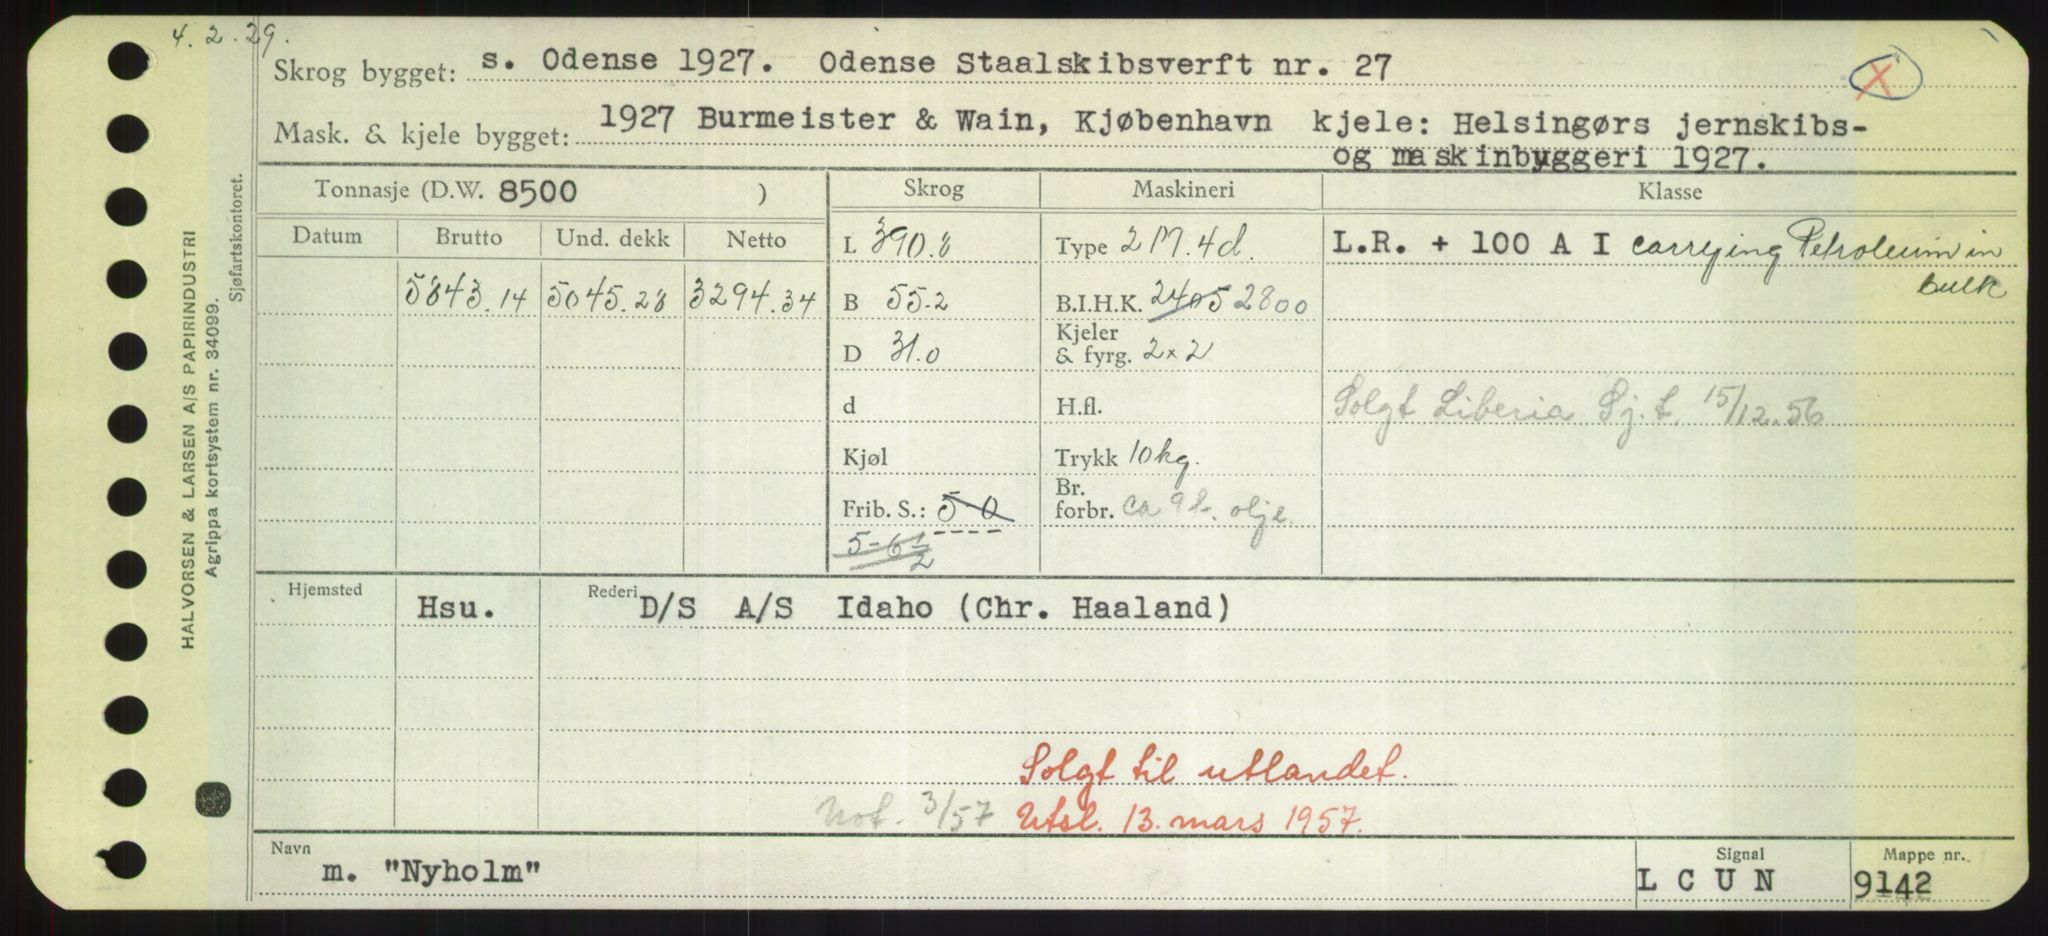 4.2.29.
Skrog bygget: s. Odense 1927. Odense Staalskibsverft nr. 27
X
Mask. & kjele bygget: 1927 Burmeister & Wain, Kjøbenhavn kjele: Helsingørs jernskibs-
og maskinbyggeri 1927.
Tonnasje (D.W. 8500 ) Skrog Maskineri Klasse
Datum Brutto Und. dekk Netto L 390.8 Type 2 M. 4d. L.R. + 100 A I carrying Petroleum in
bulk
5843.14 5045.28 3294.34 B 55.2 B.I.H.K. 2405 2800
D 31.0 Kjeler
& fyrg. 2x2
d H.fl. Solgt Liberia Sj.t. 15/12.56
Kjøl Trykk 10 kg.
Frib. S.: 5-0 Br.
forbr. ca 9 t. olje.
5-6 1/2
Hjemsted Hsu. Rederi D/S A/S Idaho (Chr. Haaland)
Solgt til utlandet.
Not. 3/57 Utsl. 13. mars 1957.
Navn m. "Nyholm" Signal L C U N Mappe nr. 9142
HALVORSEN & LARSEN A/S PAPIRINDUSTRI
Agrippa kortsystem nr. 34099.
Sjøfartskontoret.